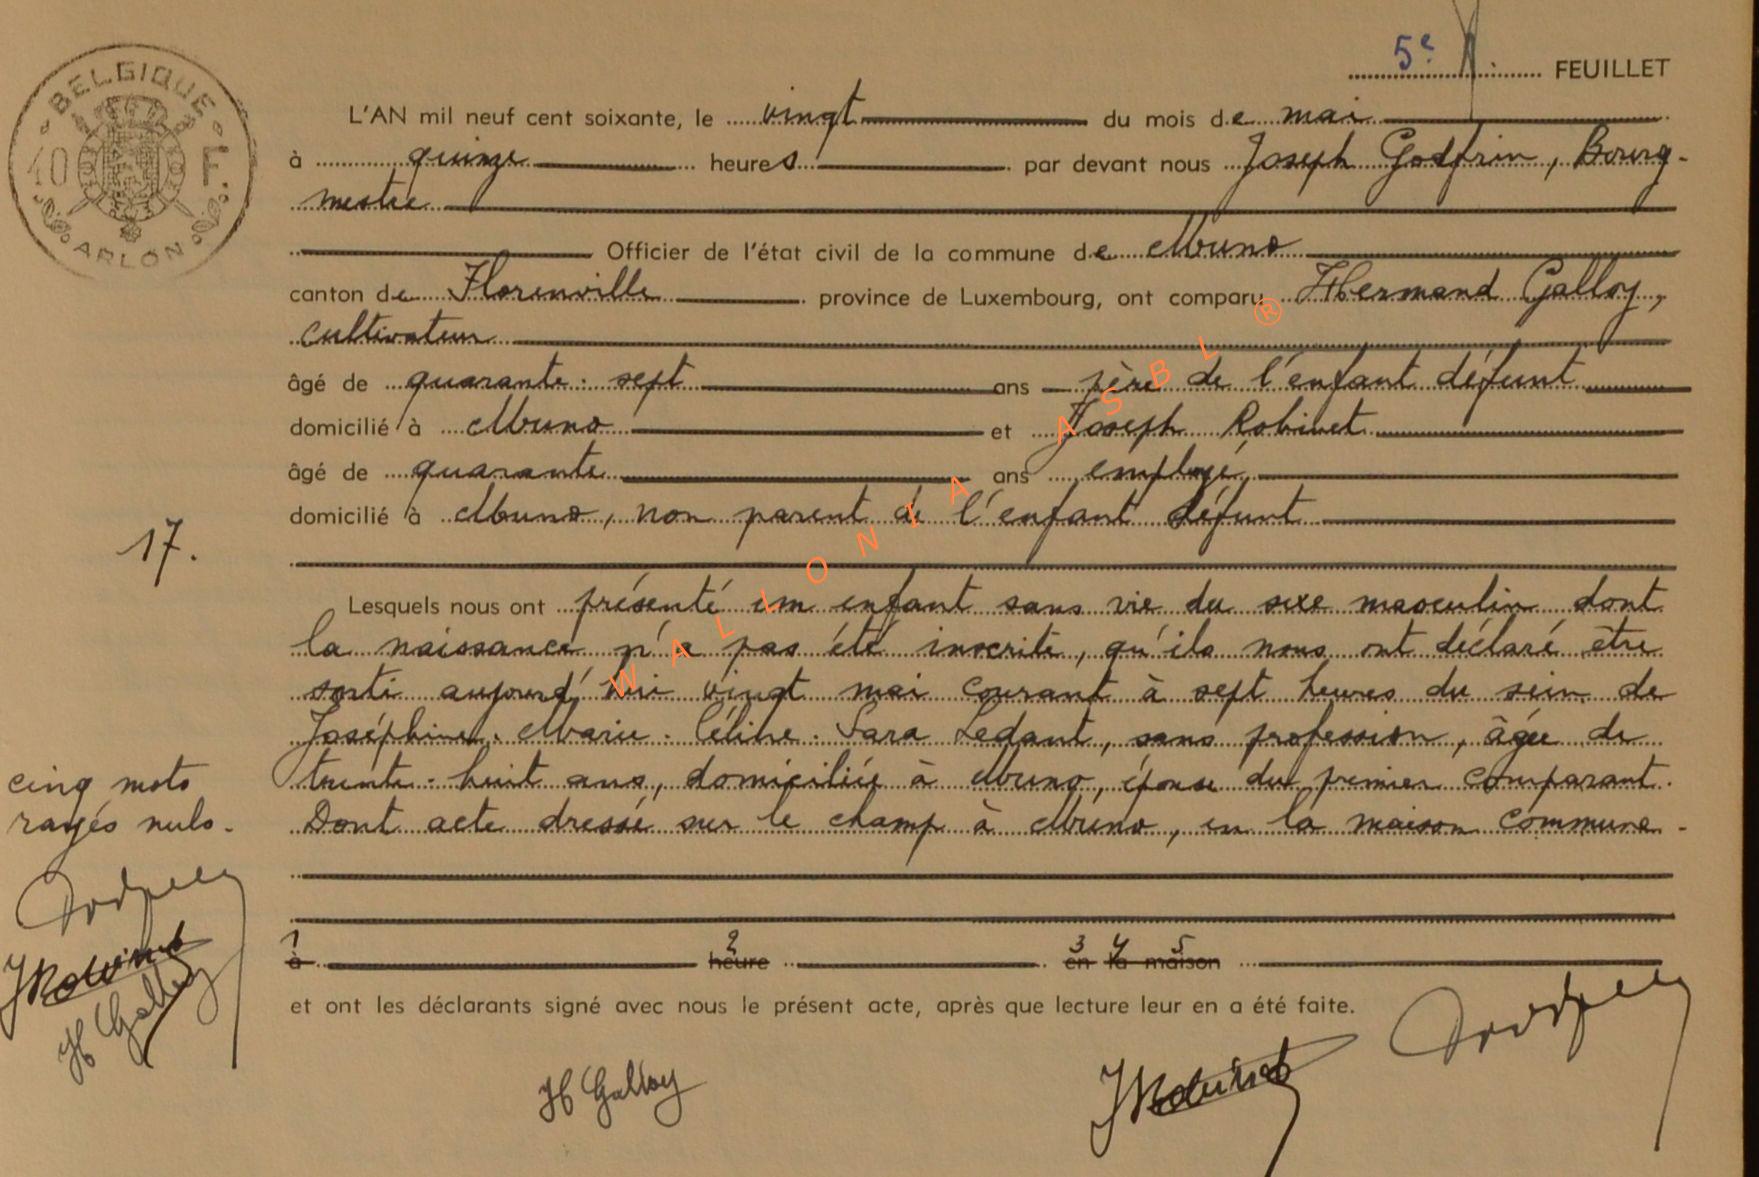 5e FEUILLET
BELGIQUE
10 F.
ARLON
L'AN mil neuf cent soixante, le vingt du mois de mai
à quinze heures par devant nous Joseph Godfrin, Bourg-
mestre
Officier de l'état civil de la commune de Muno
canton de Florenville province de Luxembourg, ont comparu Hermand Galloy,
cultivateur
âgé de quarante-sept ans père de l'enfant défunt
domicilié à Muno et Joseph Robinet
âgé de quarante ans employé
domicilié à Muno, non parent de l'enfant défunt
17.
Lesquels nous ont présenté un enfant sans vie du sexe masculin dont
la naissance n'a pas été inscrite, qu'ils nous ont déclaré être
sorti aujourd'hui vingt mai courant à sept heures du sein de
Joséphine-Marie-Céline-Sara Ledant, sans profession, âgée de
trente-huit ans, domiciliée à Muno, épouse du premier comparant.
Dont acte dressé sur le champ à Muno, en la maison commune.
cinq mots
rayés nuls.
1 2 3 4 5
à heure en la maison
et ont les déclarants signé avec nous le présent acte, après que lecture leur en a été faite.
JRobinet
H Galloy
H Galloy
JRobinet
WALLONIA ASBL ®